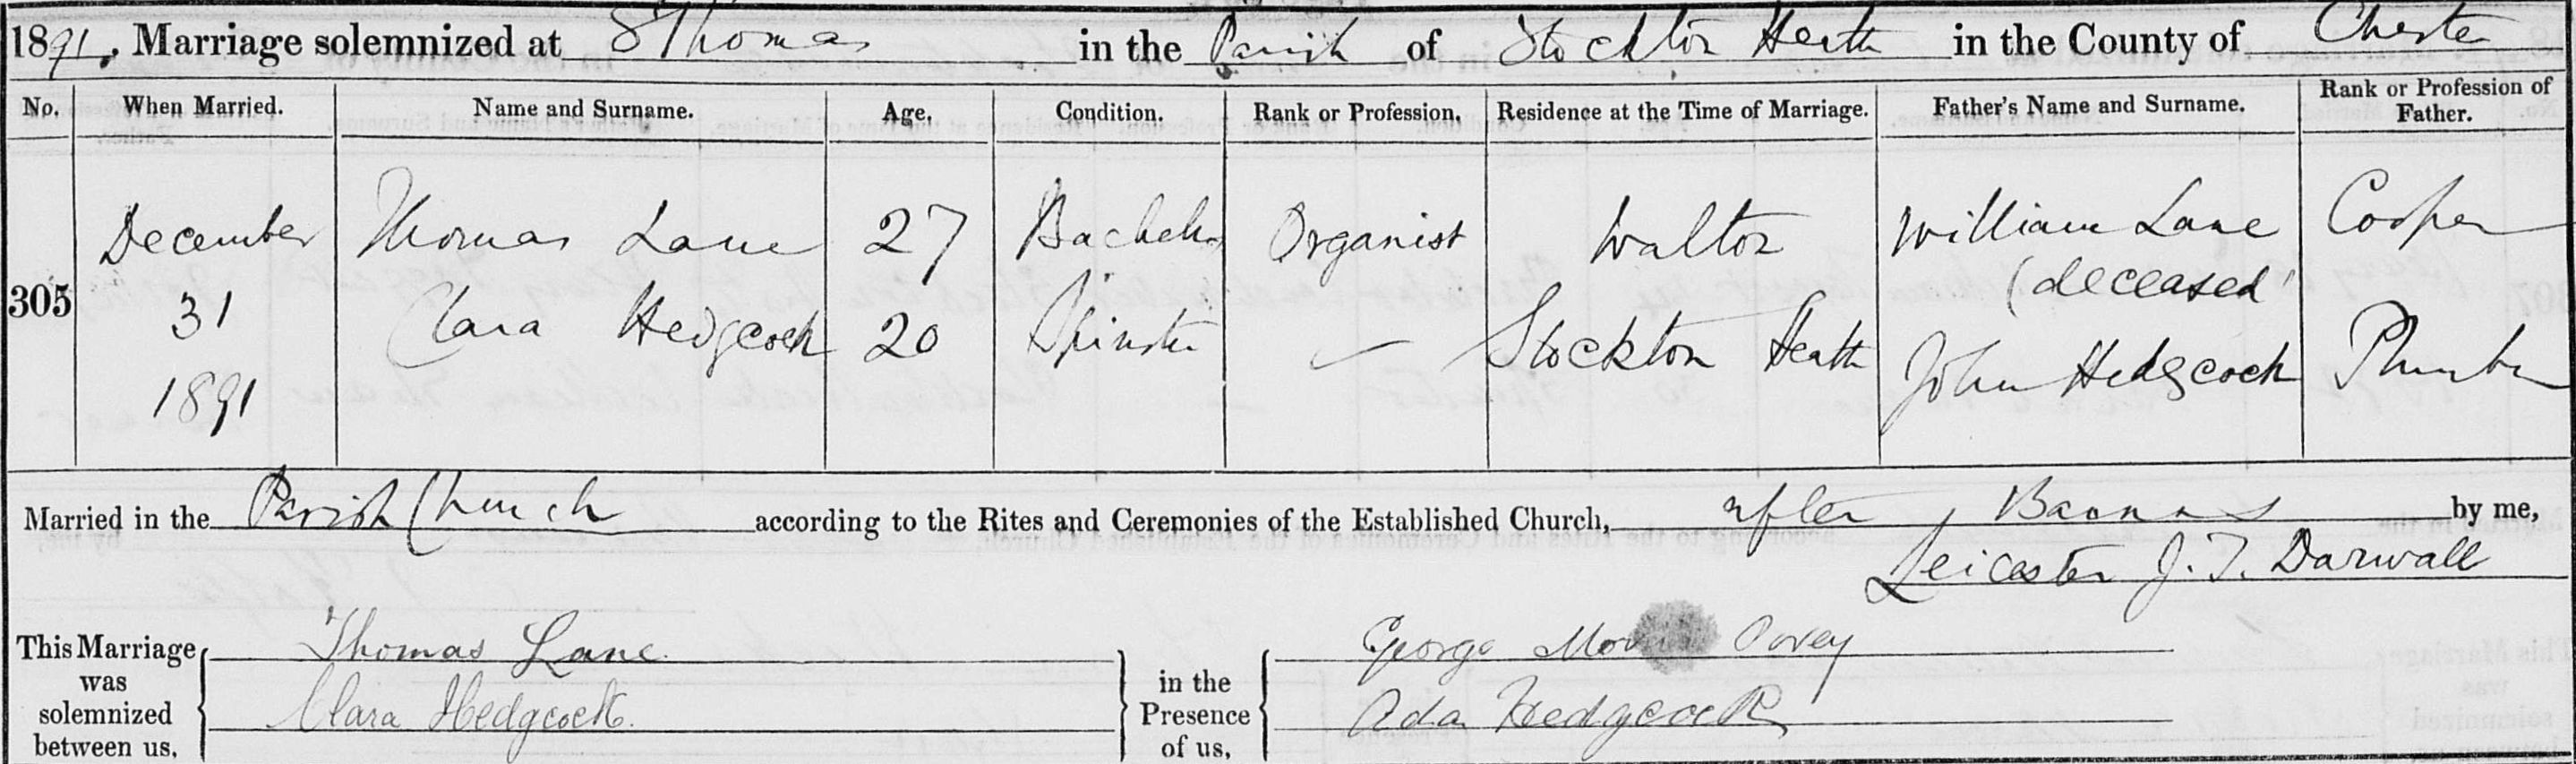 1891. Marriage solemnized at St Thomas in the Parish of Stockton Heath in the County of Chester
No. When Married. Name and Surname. Age. Condition. Rank or Profession. Residence at the Time of Marriage. Father's Name and Surname. Rank or Profession of Father.
305 December 31 1891
Thomas Lane 27 Bachelor Organist Walton William Lane (deceased) Cooper
Clara Hedgcock 20 Spinster — Stockton Heath John Hedgcock Plumber
Married in the Parish Church according to the Rites and Ceremonies of the Established Church, after Banns by me,
Leicester J. T. Darwall
This Marriage was solemnized between us, Thomas Lane
Clara Hedgcock
in the Presence of us, George Povey
Ada Hedgcock